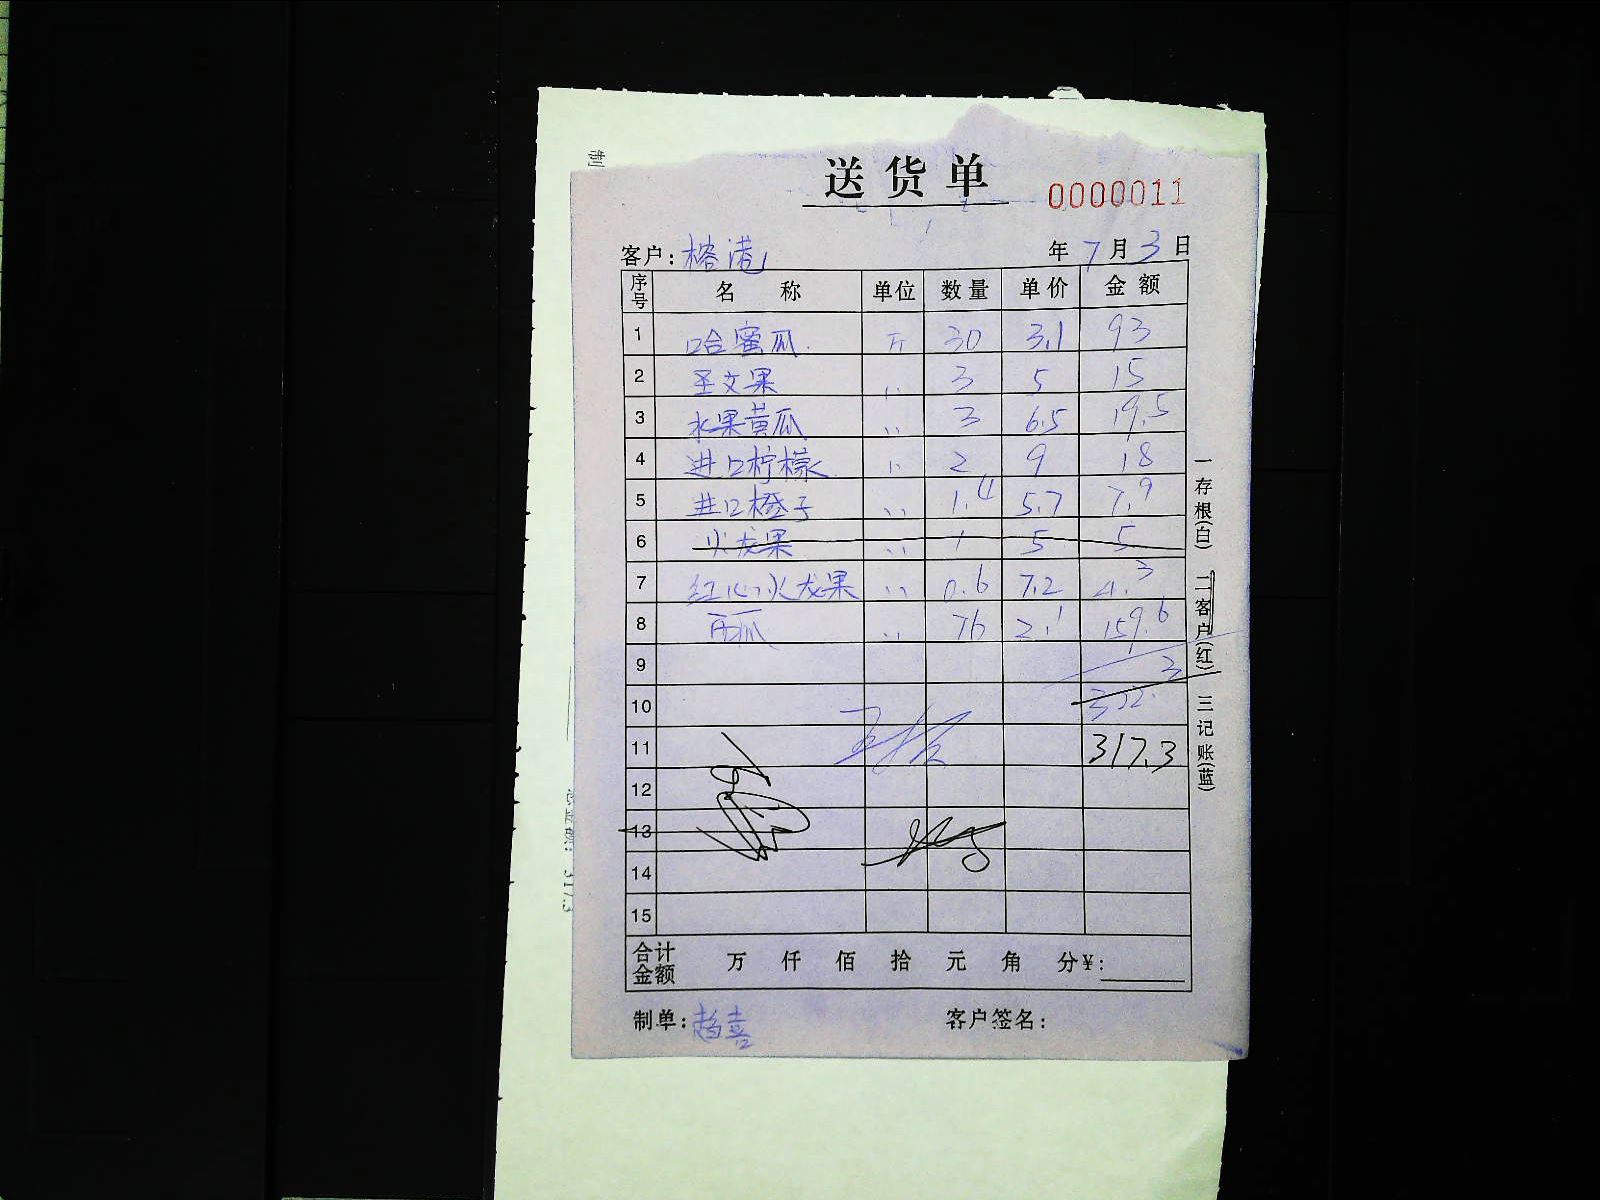 送货单 0000011
客户: 榕港 年 7 月 3 日
序号 名 称 单位 数量 单价 金额
1 哈蜜瓜. 斤 30 3.1 93
2 圣文果 〃 3 5 15
3 水果黄瓜 〃 3 6.5 19.5
4 进口柠檬 〃 2 9 18
5 进口橙子 〃 1.4 5.7 7.9
6 火龙果 〃 1 5 5
7 红心火龙果 〃 0.6 7.2 4.3
8 西瓜 〃 76 2.1 159.6
9
10 322.3
11 317.3
12
13
14
15
合计金额 万 仟 佰 拾 元 角 分 ¥:
制单: 赵喜 客户签名:
一存根(白) 二客户(红) 三记账(蓝)
制